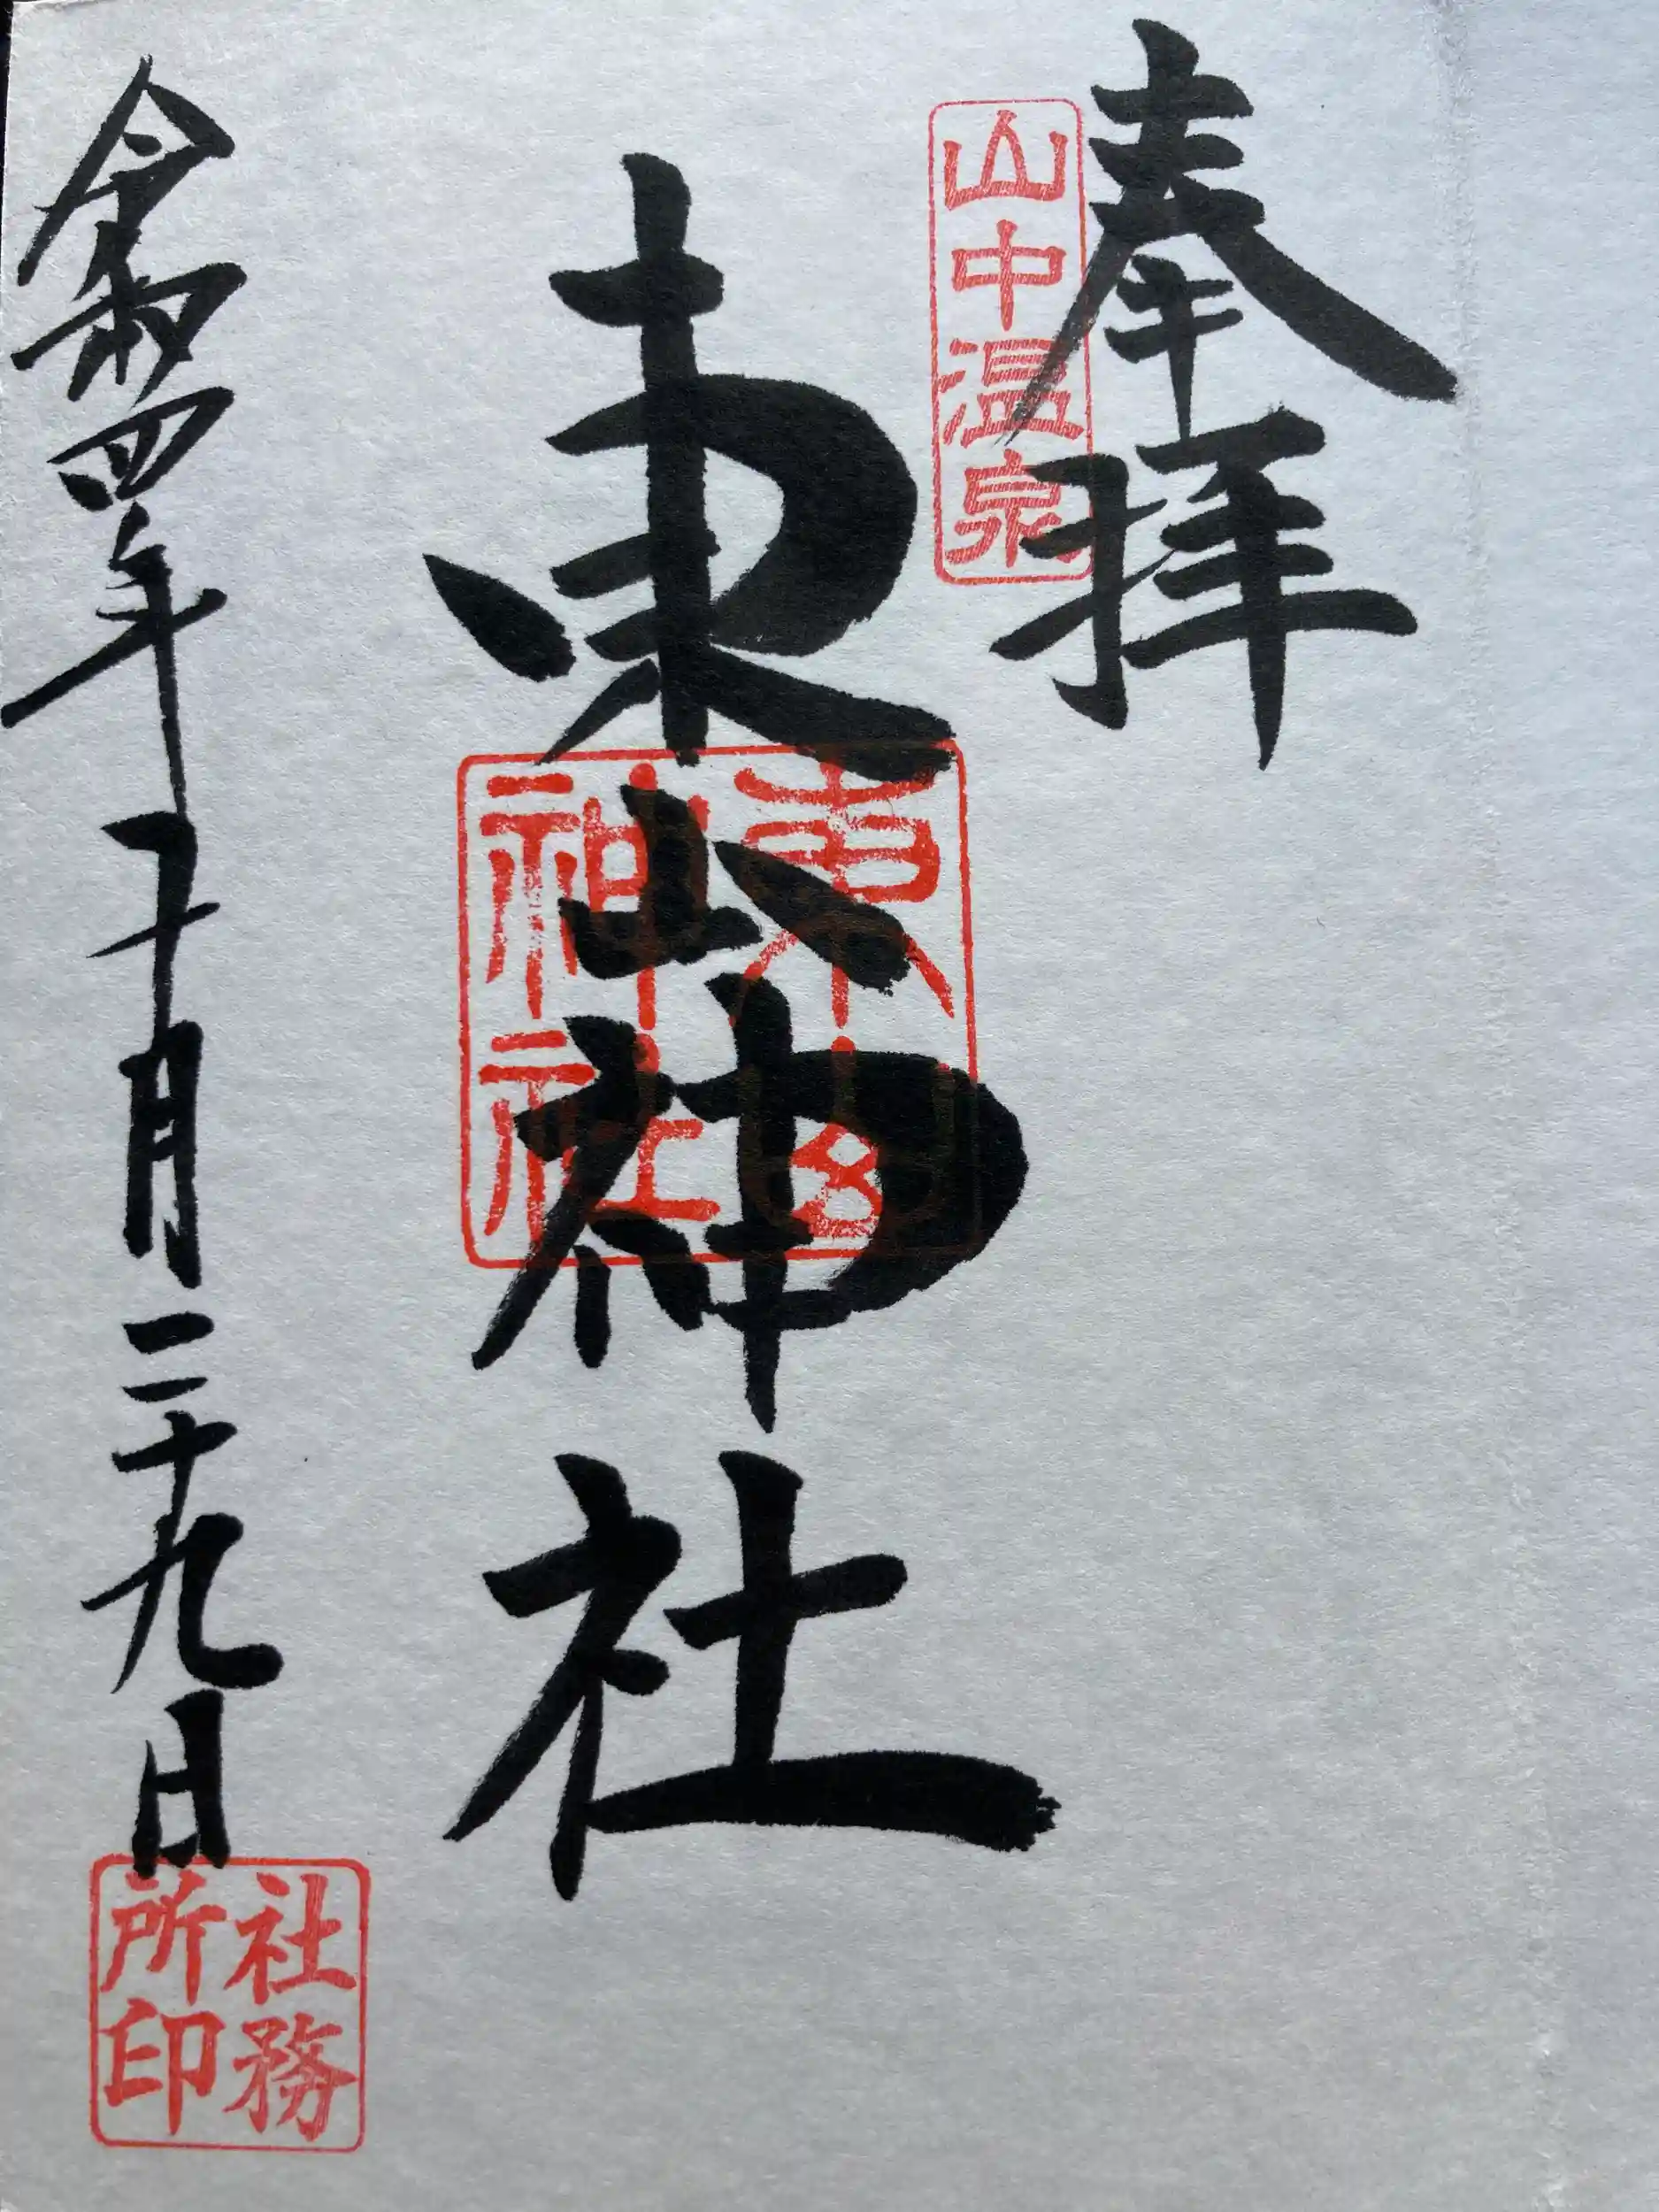 奉拝
山中温泉
東山神社
東山
神社
令和四年十月二十九日
社務
所印